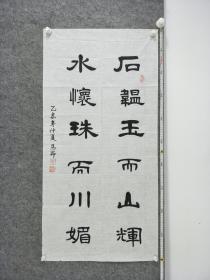 石韞玉而山輝
水懷珠而川媚
乙未年仲夏